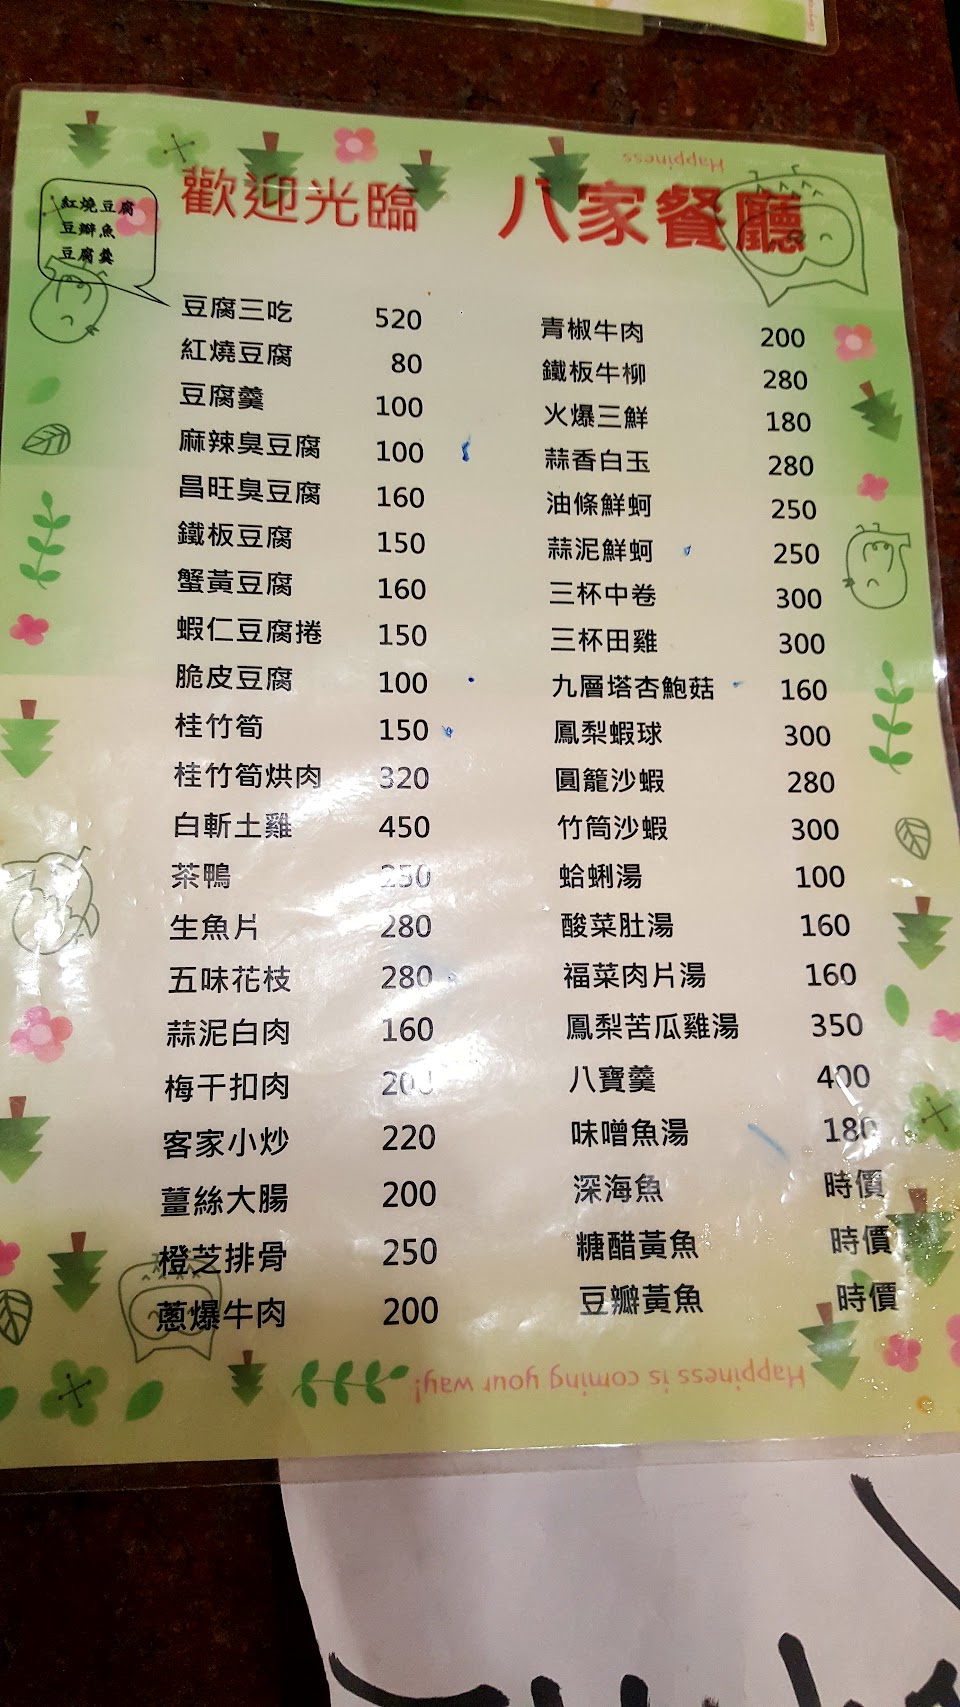 Happiness
歡迎光臨 八家餐廳
紅燒豆腐
豆瓣魚
豆腐羹
豆腐三吃 520
紅燒豆腐 80
豆腐羹 100
麻辣臭豆腐 100
昌旺臭豆腐 160
鐵板豆腐 150
蟹黃豆腐 160
蝦仁豆腐捲 150
脆皮豆腐 100
桂竹筍 150
桂竹筍烘肉 320
白斬土雞 450
茶鴨 250
生魚片 280
五味花枝 280
蒜泥白肉 160
梅干扣肉 200
客家小炒 220
薑絲大腸 200
橙芝排骨 250
蔥爆牛肉 200
青椒牛肉 200
鐵板牛柳 280
火爆三鮮 180
蒜香白玉 280
油條鮮蚵 250
蒜泥鮮蚵 250
三杯中卷 300
三杯田雞 300
九層塔杏鮑菇 160
鳳梨蝦球 300
圓籠沙蝦 280
竹筒沙蝦 300
蛤蜊湯 100
酸菜肚湯 160
福菜肉片湯 160
鳳梨苦瓜雞湯 350
八寶羹 400
味噌魚湯 180
深海魚 時價
糖醋黃魚 時價
豆瓣黃魚 時價
Happiness is coming your way!